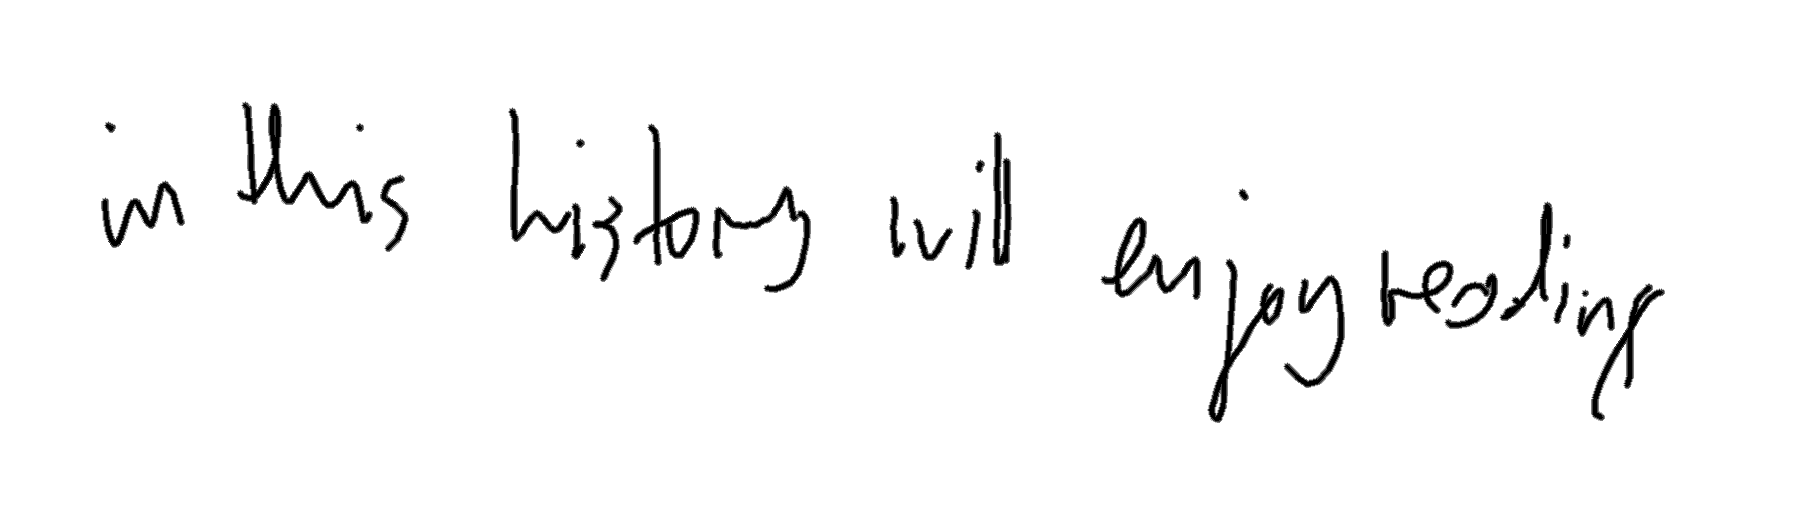 in this history will enjoy reading